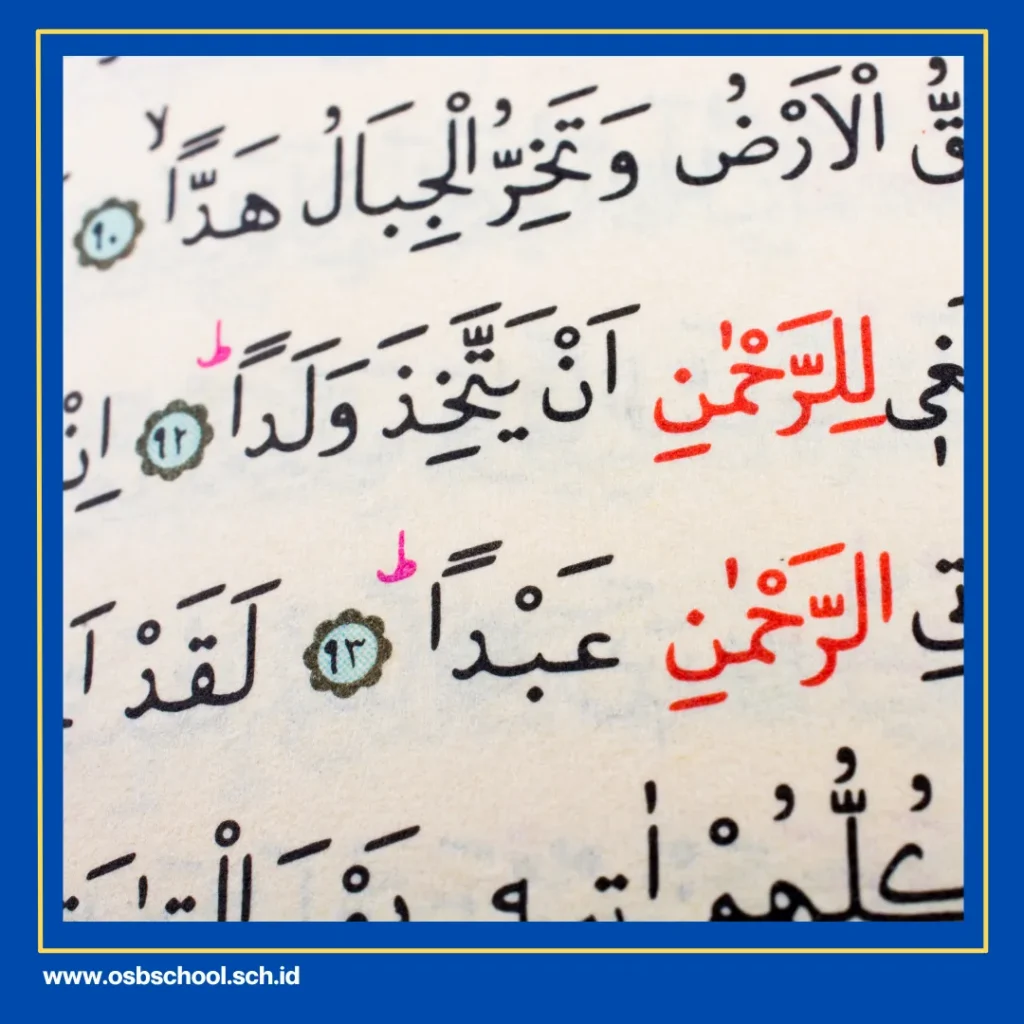 الْاَرْضُ وَتَخِرُّ الْجِبَالُ هَدًّاۙ ٩٠
لِلرَّحْمٰنِ اَنْ يَّتَّخِذَ وَلَدًاۗ ٩٢ اِنْ
الرَّحْمٰنِ عَبْدًاۗ ٩٣ لَقَدْ
كُلُّهُمْ اٰتِيْهِ يَوْمَ
www.osbschool.sch.id